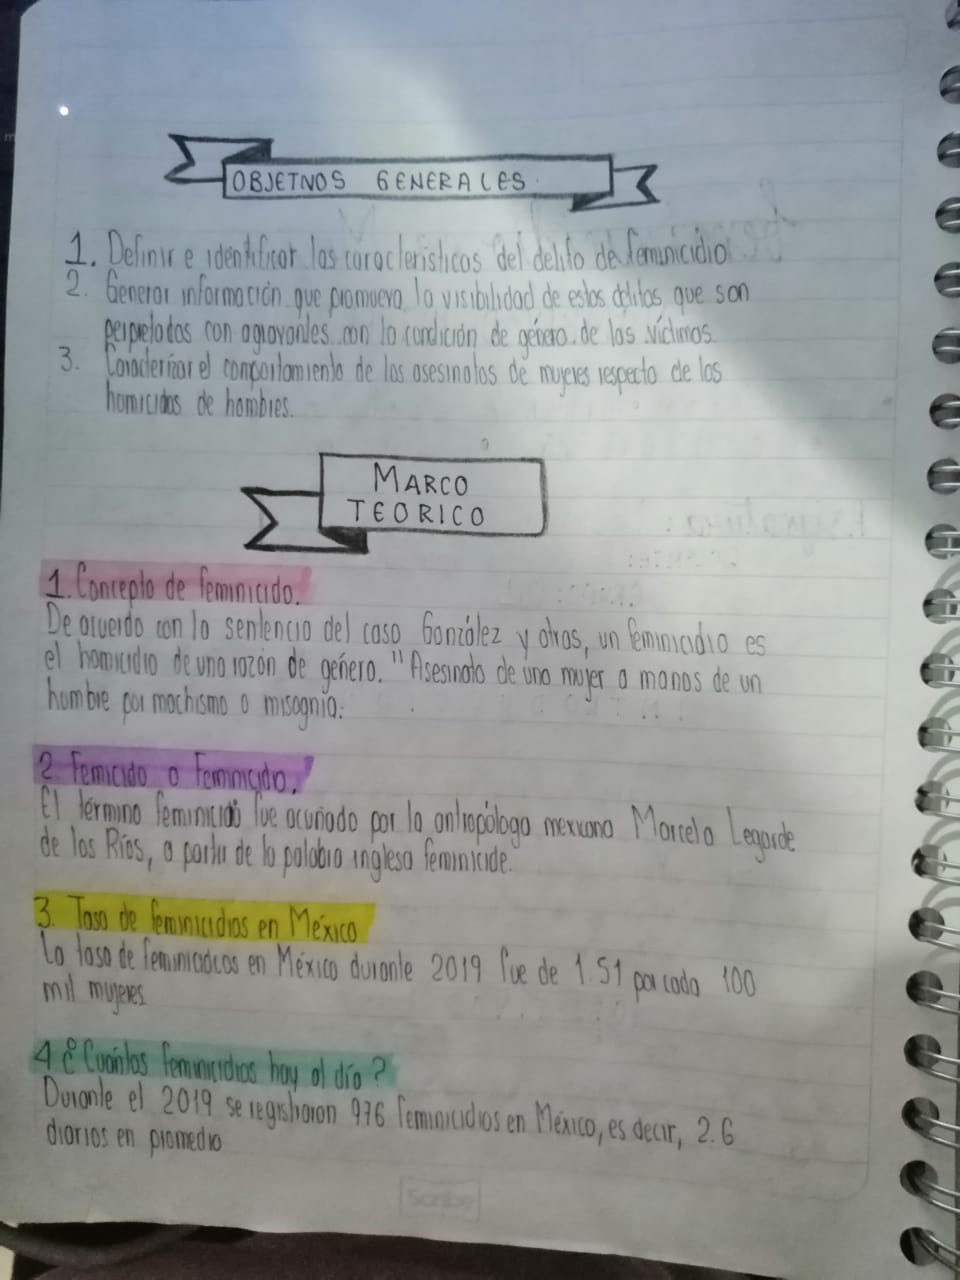 OBJETIVOS GENERALES.
1. Definir e identificar las características del delito de feminicidio
2. Generar información que promueva la visibilidad de estos delitos que son
perpretados con agravantes con la condición de género de las víctimos.
3. Caracterizar el comportamiento de los asesinatos de mujeres respecto de los
homicidos de hombres.
MARCO
TEORICO
1. Concepto de feminicido.
De acuerdo con la sentencia del caso González y otras, un feminicidio es
el homicidio de una razón de género. "Asesinato de una mujer a manos de un
hombre por machismo o misognia.
2. Femicido o Feminicido.
El término feminicidio fue acuñado por la antropóloga mexicana Marcela Legarde
de los Ríos, a partir de la palabra inglesa feminicide.
3. Tasa de feminicidios en México
La tasa de feminicidios en México durante 2019 fue de 1.51 por cada 100
mil mujeres
4 ¿Cuántos feminicidios hay al día?
Durante el 2019 se registraron 976 feminicidios en México, es decir, 2.6
diarios en promedio
Scribe